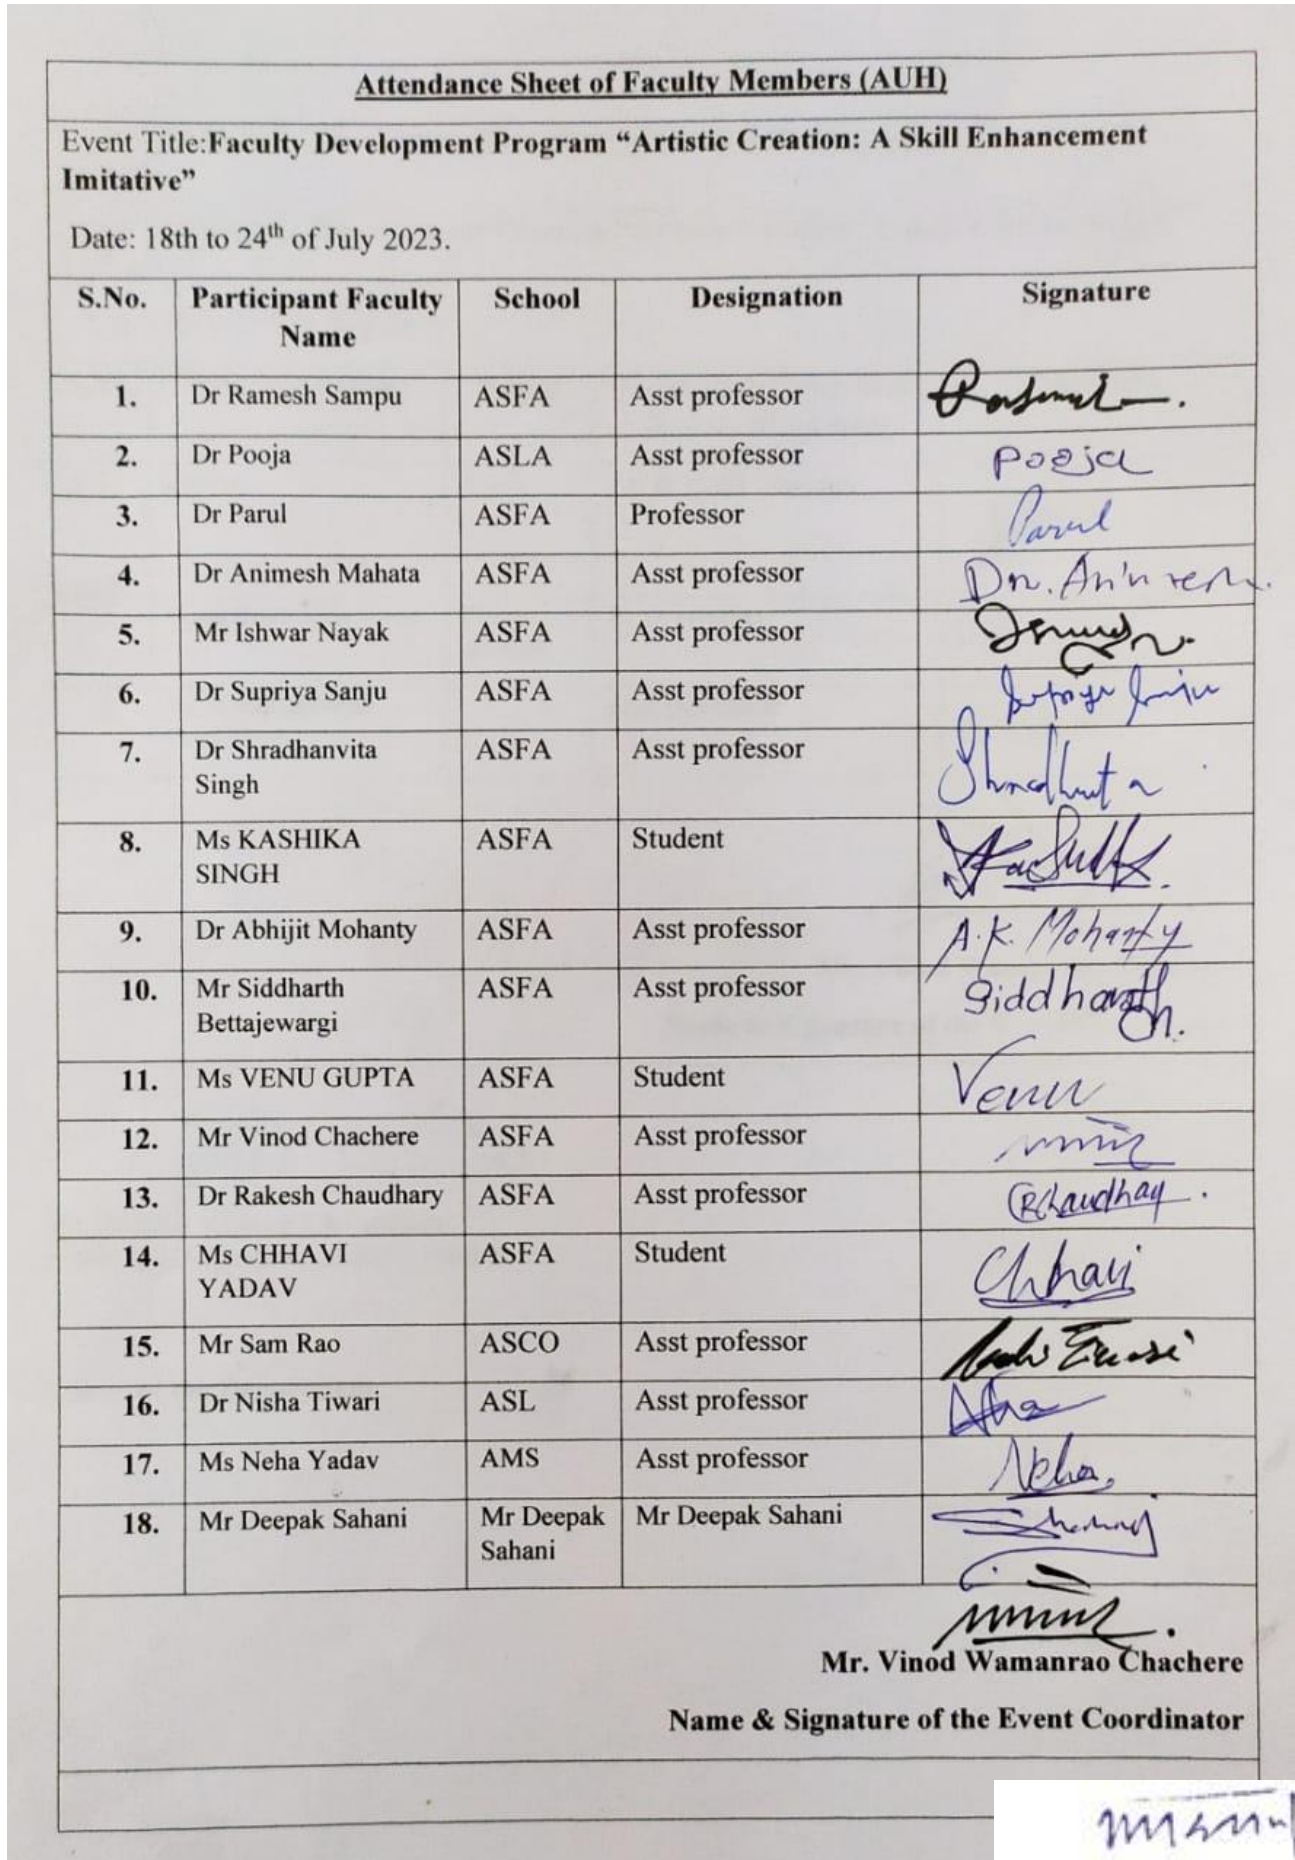 Attendance Sheet of Faculty Members (AUH)
Event Title:Faculty Development Program “Artistic Creation: A Skill Enhancement
Imitative”
Date: 18th to 24th of July 2023.
S.No. Participant Faculty Name School Designation Signature
1. Dr Ramesh Sampu ASFA Asst professor
2. Dr Pooja ASLA Asst professor Pooja
3. Dr Parul ASFA Professor Parul
4. Dr Animesh Mahata ASFA Asst professor
5. Mr Ishwar Nayak ASFA Asst professor
6. Dr Supriya Sanju ASFA Asst professor
7. Dr Shradhanvita Singh ASFA Asst professor
8. Ms KASHIKA SINGH ASFA Student
9. Dr Abhijit Mohanty ASFA Asst professor A.K. Mohanty
10. Mr Siddharth Bettajewargi ASFA Asst professor Siddharth
11. Ms VENU GUPTA ASFA Student Venu
12. Mr Vinod Chachere ASFA Asst professor
13. Dr Rakesh Chaudhary ASFA Asst professor
14. Ms CHHAVI YADAV ASFA Student Chhavi
15. Mr Sam Rao ASCO Asst professor
16. Dr Nisha Tiwari ASL Asst professor
17. Ms Neha Yadav AMS Asst professor Neha
18. Mr Deepak Sahani Mr Deepak Sahani Mr Deepak Sahani
Mr. Vinod Wamanrao Chachere
Name & Signature of the Event Coordinator